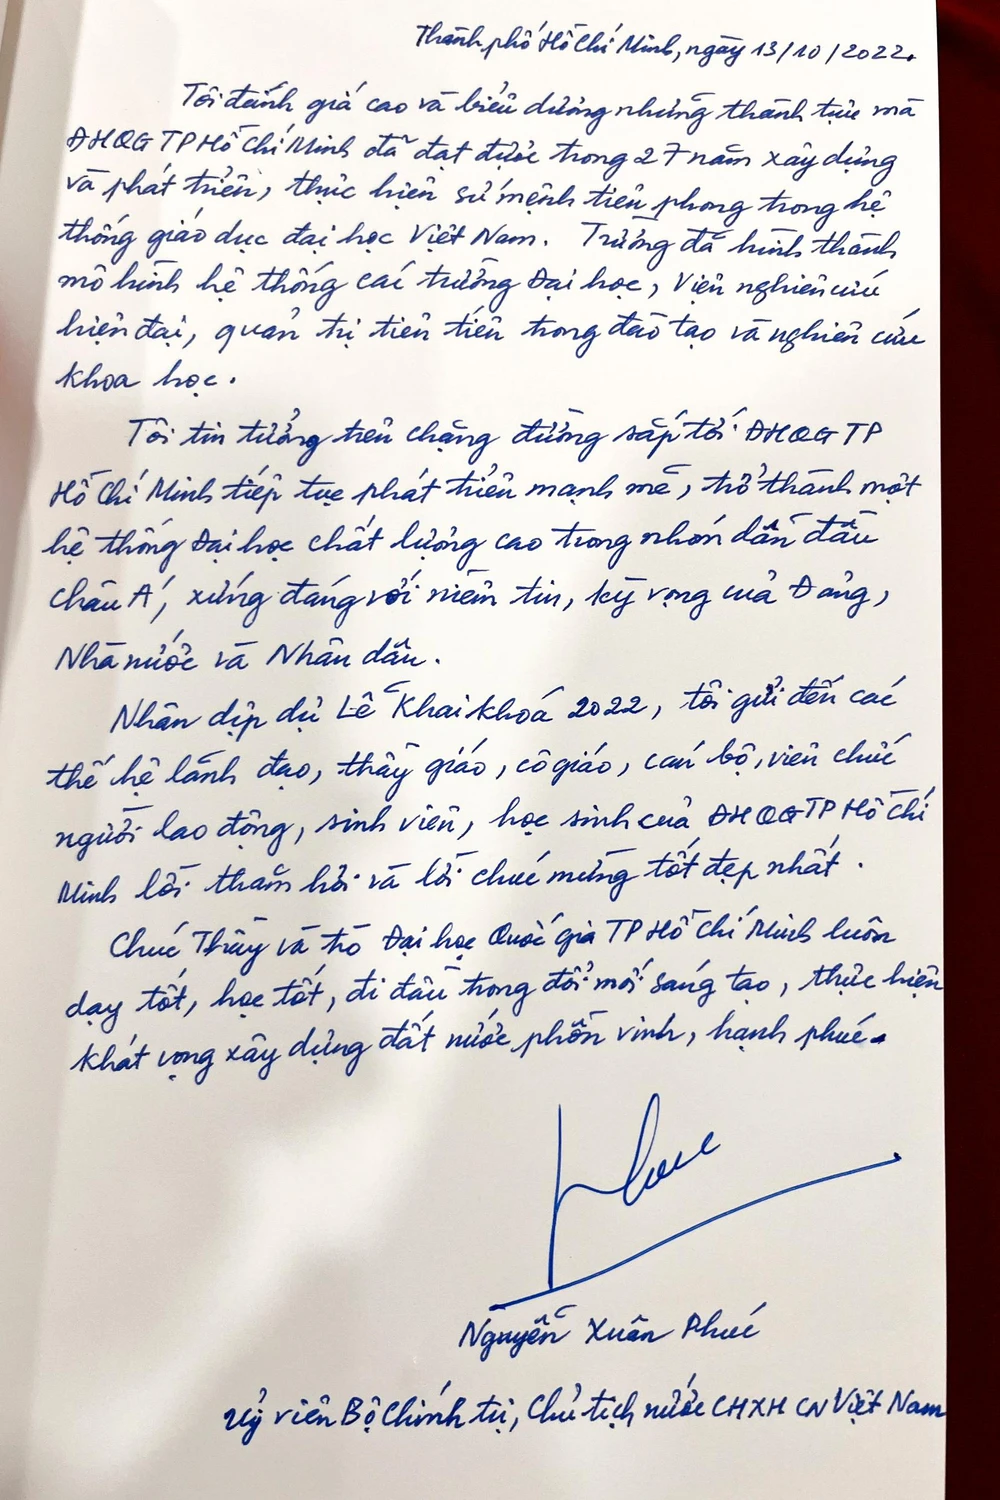 Thành phố Hồ Chí Minh, ngày 13/10/2022.
Tôi đánh giá cao và biểu dương những thành tựu mà
ĐHQG TP Hồ Chí Minh đã đạt được trong 27 năm xây dựng
và phát triển, thực hiện sứ mệnh tiên phong trong hệ
thống giáo dục đại học Việt Nam. Trường đã hình thành
mô hình hệ thống các trường Đại học, Viện nghiên cứu
hiện đại, quản trị tiên tiến trong đào tạo và nghiên cứu
khoa học.
Tôi tin tưởng trên chặng đường sắp tới ĐHQG TP
Hồ Chí Minh tiếp tục phát triển mạnh mẽ, trở thành một
hệ thống Đại học chất lượng cao trong nhóm dẫn đầu
châu Á, xứng đáng với niềm tin, kỳ vọng của Đảng,
Nhà nước và Nhân dân.
Nhân dịp dự Lễ Khai khoá 2022, tôi gửi đến các
thế hệ lãnh đạo, thầy giáo, cô giáo, cán bộ, viên chức
người lao động, sinh viên, học sinh của ĐHQG TP Hồ Chí
Minh lời thăm hỏi và lời chúc mừng tốt đẹp nhất.
Chúc Thầy và trò Đại học Quốc gia TP Hồ Chí Minh luôn
dạy tốt, học tốt, đi đầu trong đổi mới sáng tạo, thực hiện
khát vọng xây dựng đất nước phồn vinh, hạnh phúc.
Phúc
Nguyễn Xuân Phúc
Uỷ viên Bộ Chính trị, Chủ tịch nước CHXHCN Việt Nam